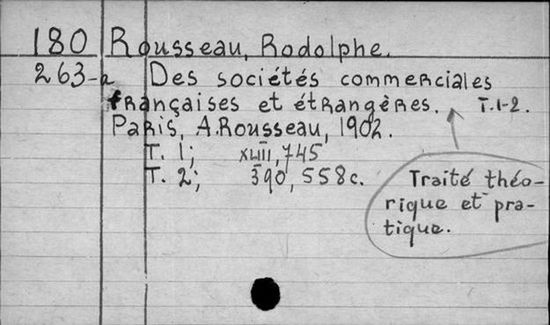 180 Rousseau, Rodolphe.
263-a Des sociétés commerciales
françaises et étrangères. T.1-2.
Paris, A.Rousseau, 1902.
T. 1; XLIII, 745
T. 2; 390, 558 c.
Traité théo-
rique et pra-
tique.